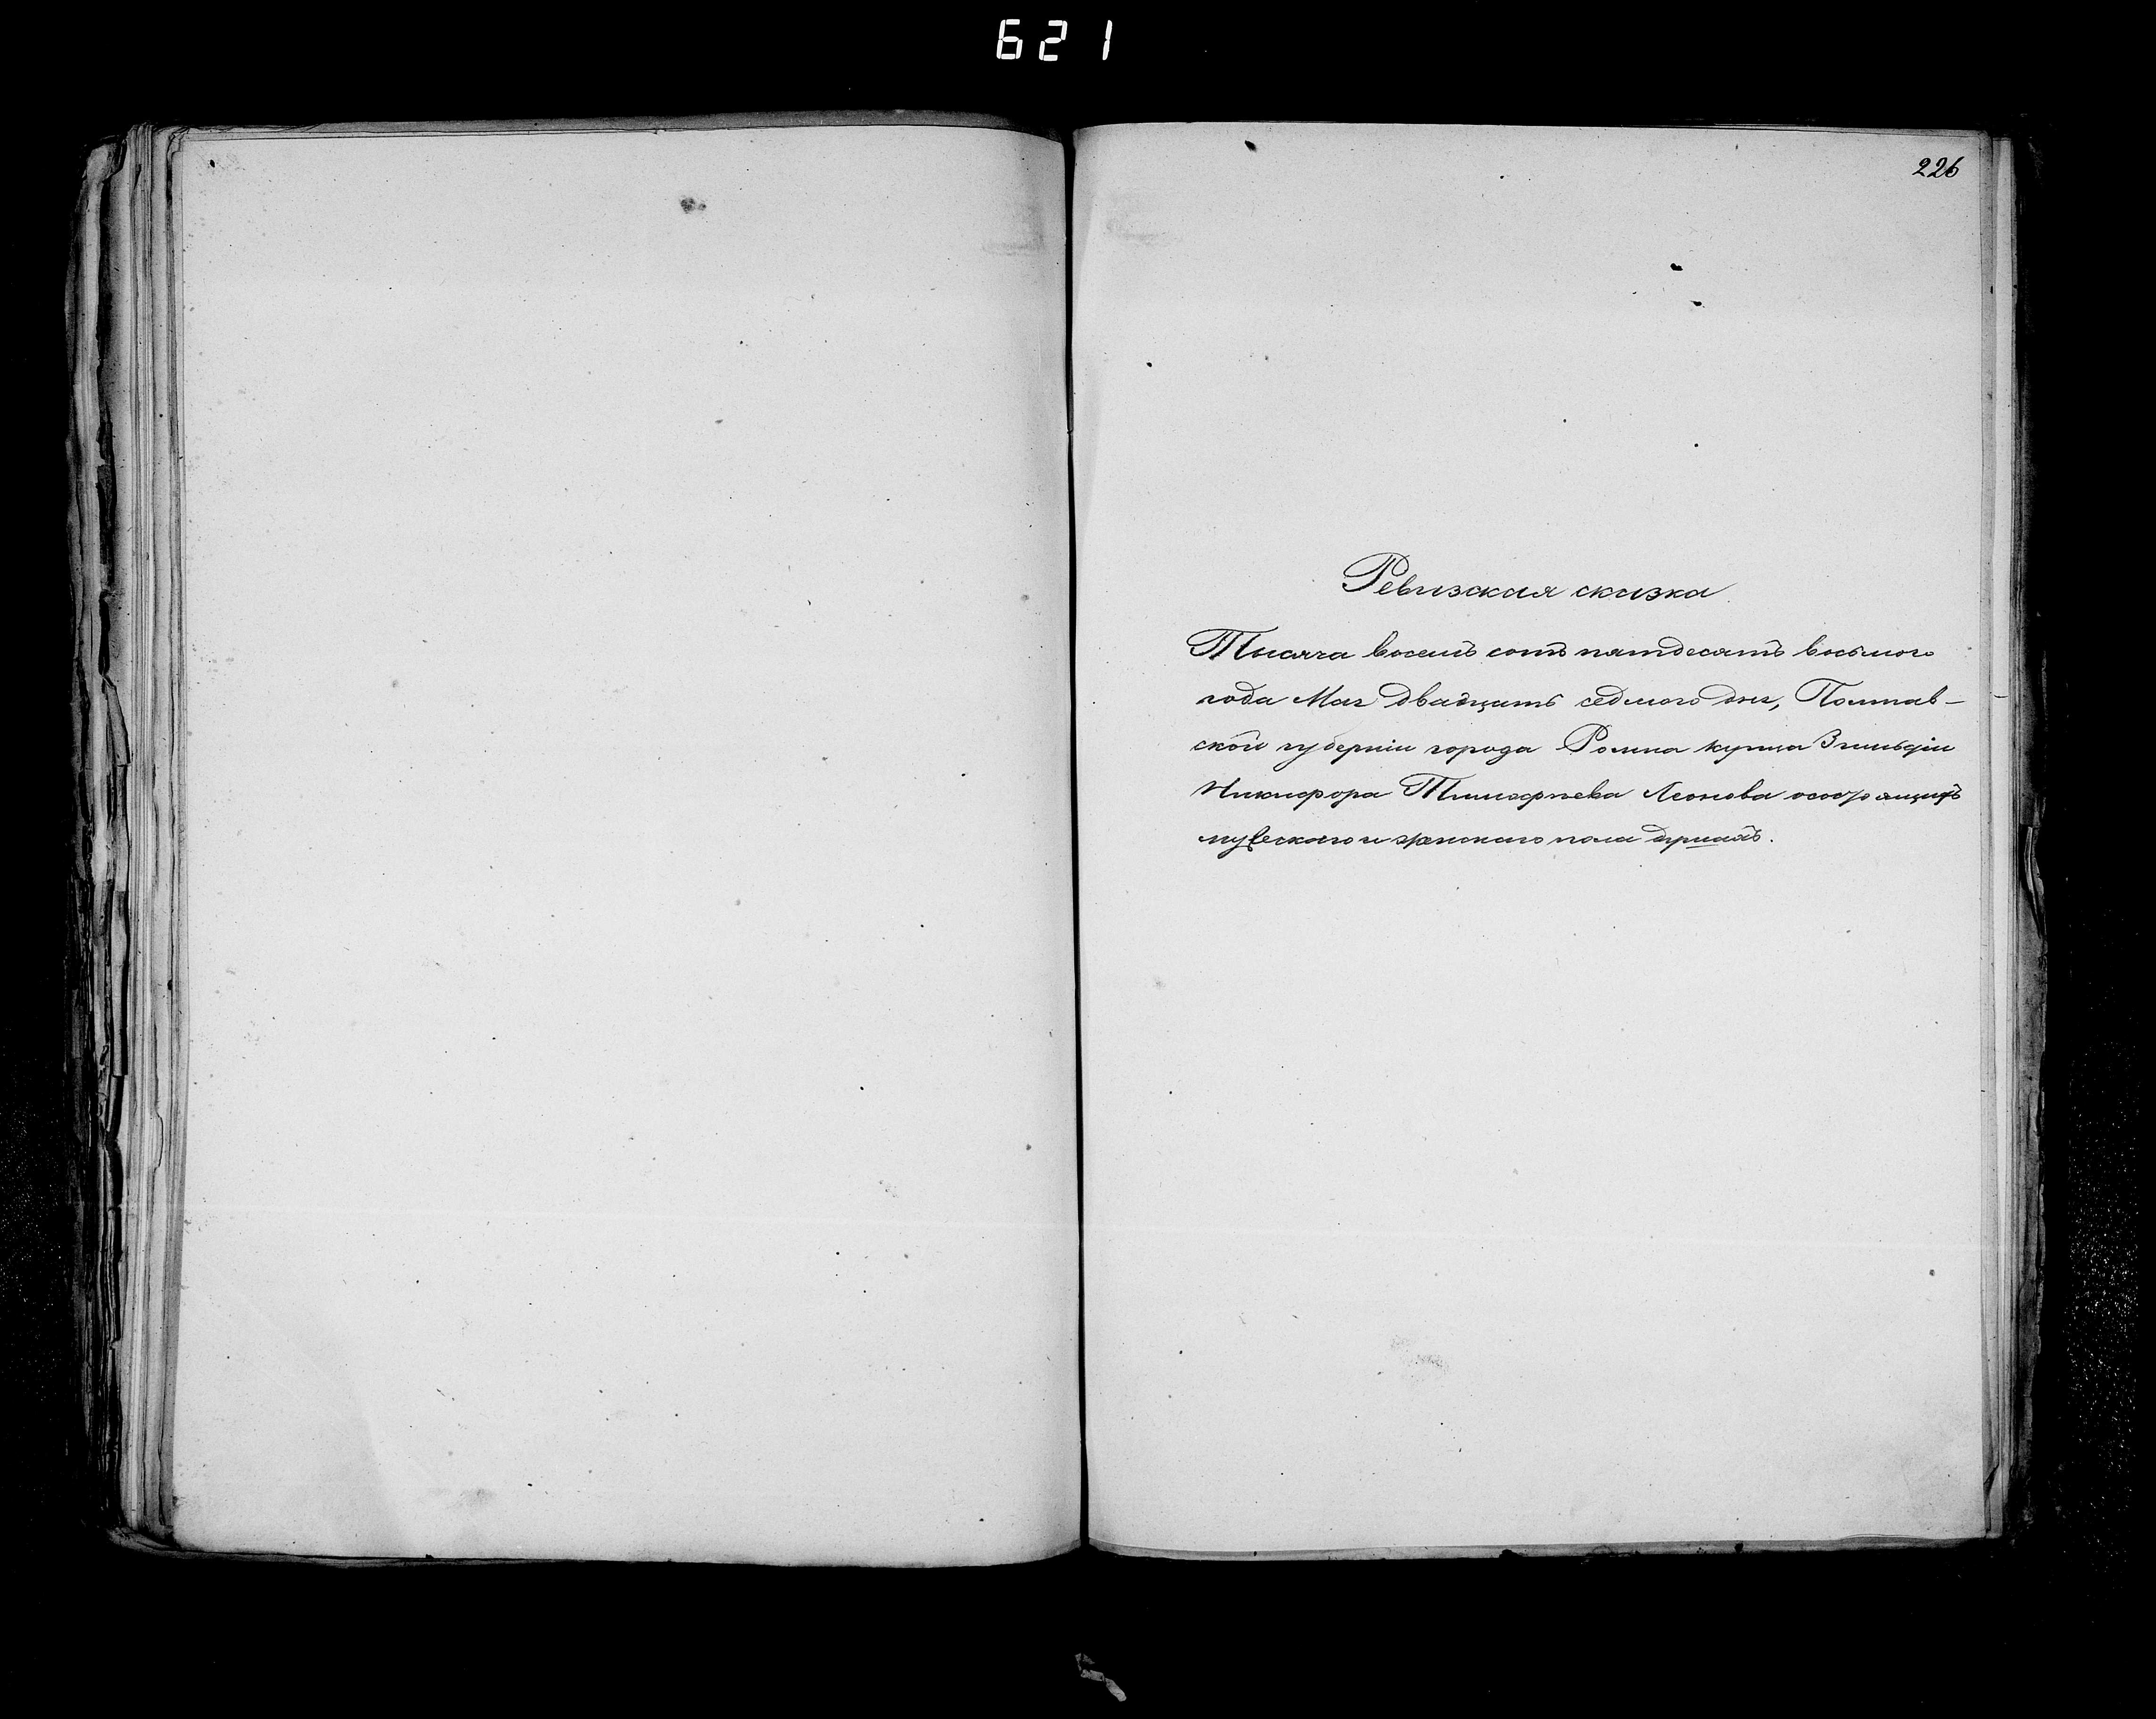 621
226
Ревизская сказка
Тысяча восемь сотъ пятдесятъ восьмого
года Мая двадцать седмого дня, Полтав-
ской губерніи города Ромна купца 3 гильдіи
Никифора Тимофѣева Леонова о состоящихъ
мужескаго и женскаго пола душахъ.